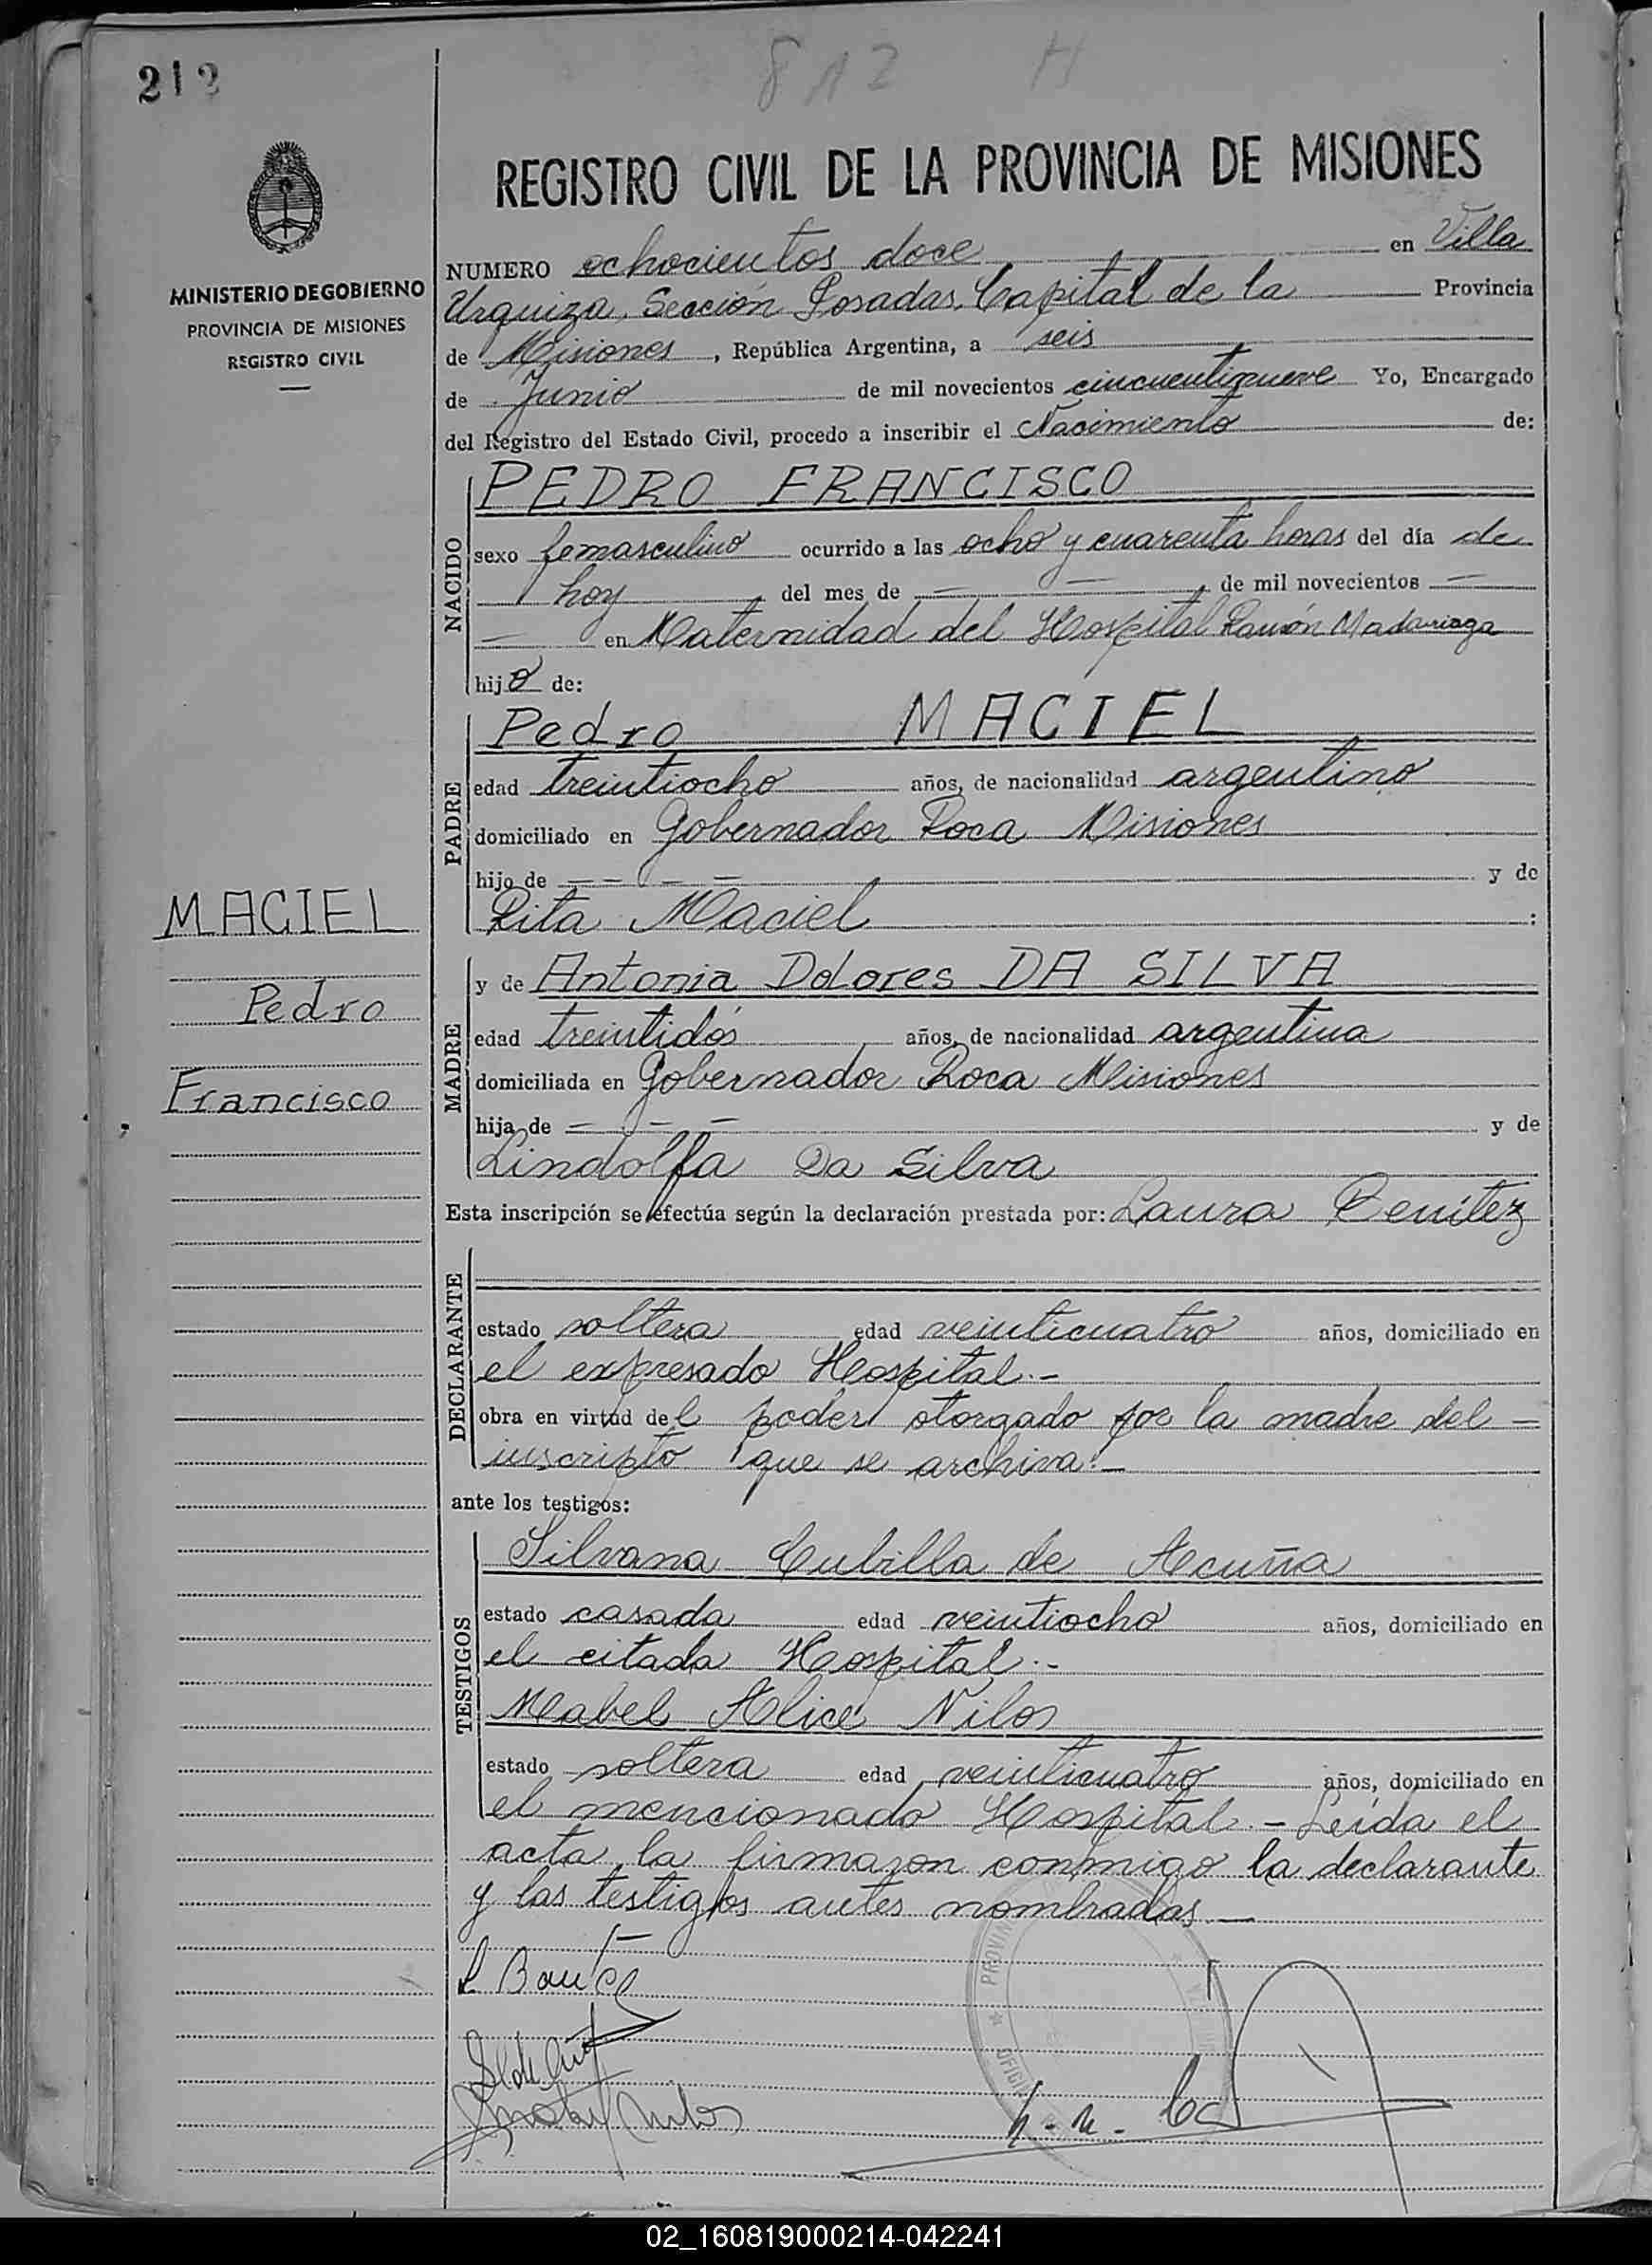 212
812 H
MINISTERIO DE GOBIERNO
PROVINCIA DE MISIONES
REGISTRO CIVIL
REGISTRO CIVIL DE LA PROVINCIA DE MISIONES
NUMERO ochocientos doce en Villa
Urquiza, Sección Posadas, Capital de la Provincia
de Misiones, República Argentina, a seis
de Junio de mil novecientos cincuentinueve Yo, Encargado
del Registro del Estado Civil, procedo a inscribir el Nacimiento de:
NACIDO
PEDRO FRANCISCO
sexo femasculino ocurrido a las ocho y cuarenta horas del día de
hoy del mes de — — de mil novecientos —
— en Maternidad del Hospital Ramón Madariaga
hijo de:
PADRE
Pedro MACIEL
edad treintiocho años, de nacionalidad argentino
domiciliado en Gobernador Roca Misiones
hijo de — — — — y de
Rita Maciel :
MACIEL
Pedro
Francisco
MADRE
y de Antonia Dolores DA SILVA
edad treintidós años, de nacionalidad argentina
domiciliada en Gobernador Roca Misiones
hija de — — — y de
Lindolfa Da Silva
Esta inscripción se efectúa según la declaración prestada por: Laura Benítez
DECLARANTE
estado soltera edad veinticuatro años, domiciliado en
el expresado Hospital.-
obra en virtud del poder otorgado por la madre del —
inscripto que se archiva.—
ante los testigos:
TESTIGOS
Silvana Cubilla de Acuña
estado casada edad veintiocho años, domiciliado en
el citado Hospital.-
Mabel Alice Nilos
estado soltera edad veinticuatro años, domiciliado en
el mencionado Hospital.- Leída el
acta la firmaron conmigo la declarante
y las testigos antes nombradas.—
PROVIN
OFICI
02_160819000214-042241